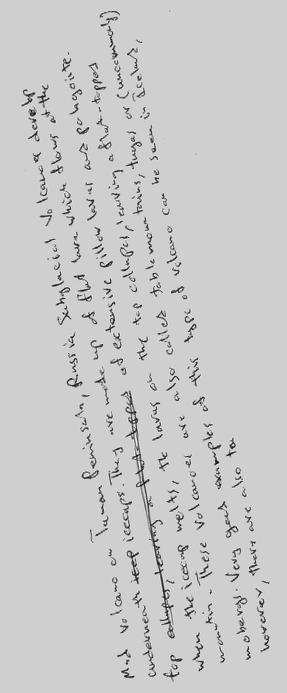 Mud Volcano on Taman Peninsula, Russia Subglacial Volcanoes develop
underneath icecaps. They are made up of flat lava which flows at the
top of extensive pillow lavas and palagonite.
When the icecap melts, the lavas on the top collapses, leaving a flat-topped
mountain. These volcanoes are also called table mountains, tuyas or (uncommonly)
mobergs. Very good examples of this type of volcano can be seen in Iceland,
however, there are also